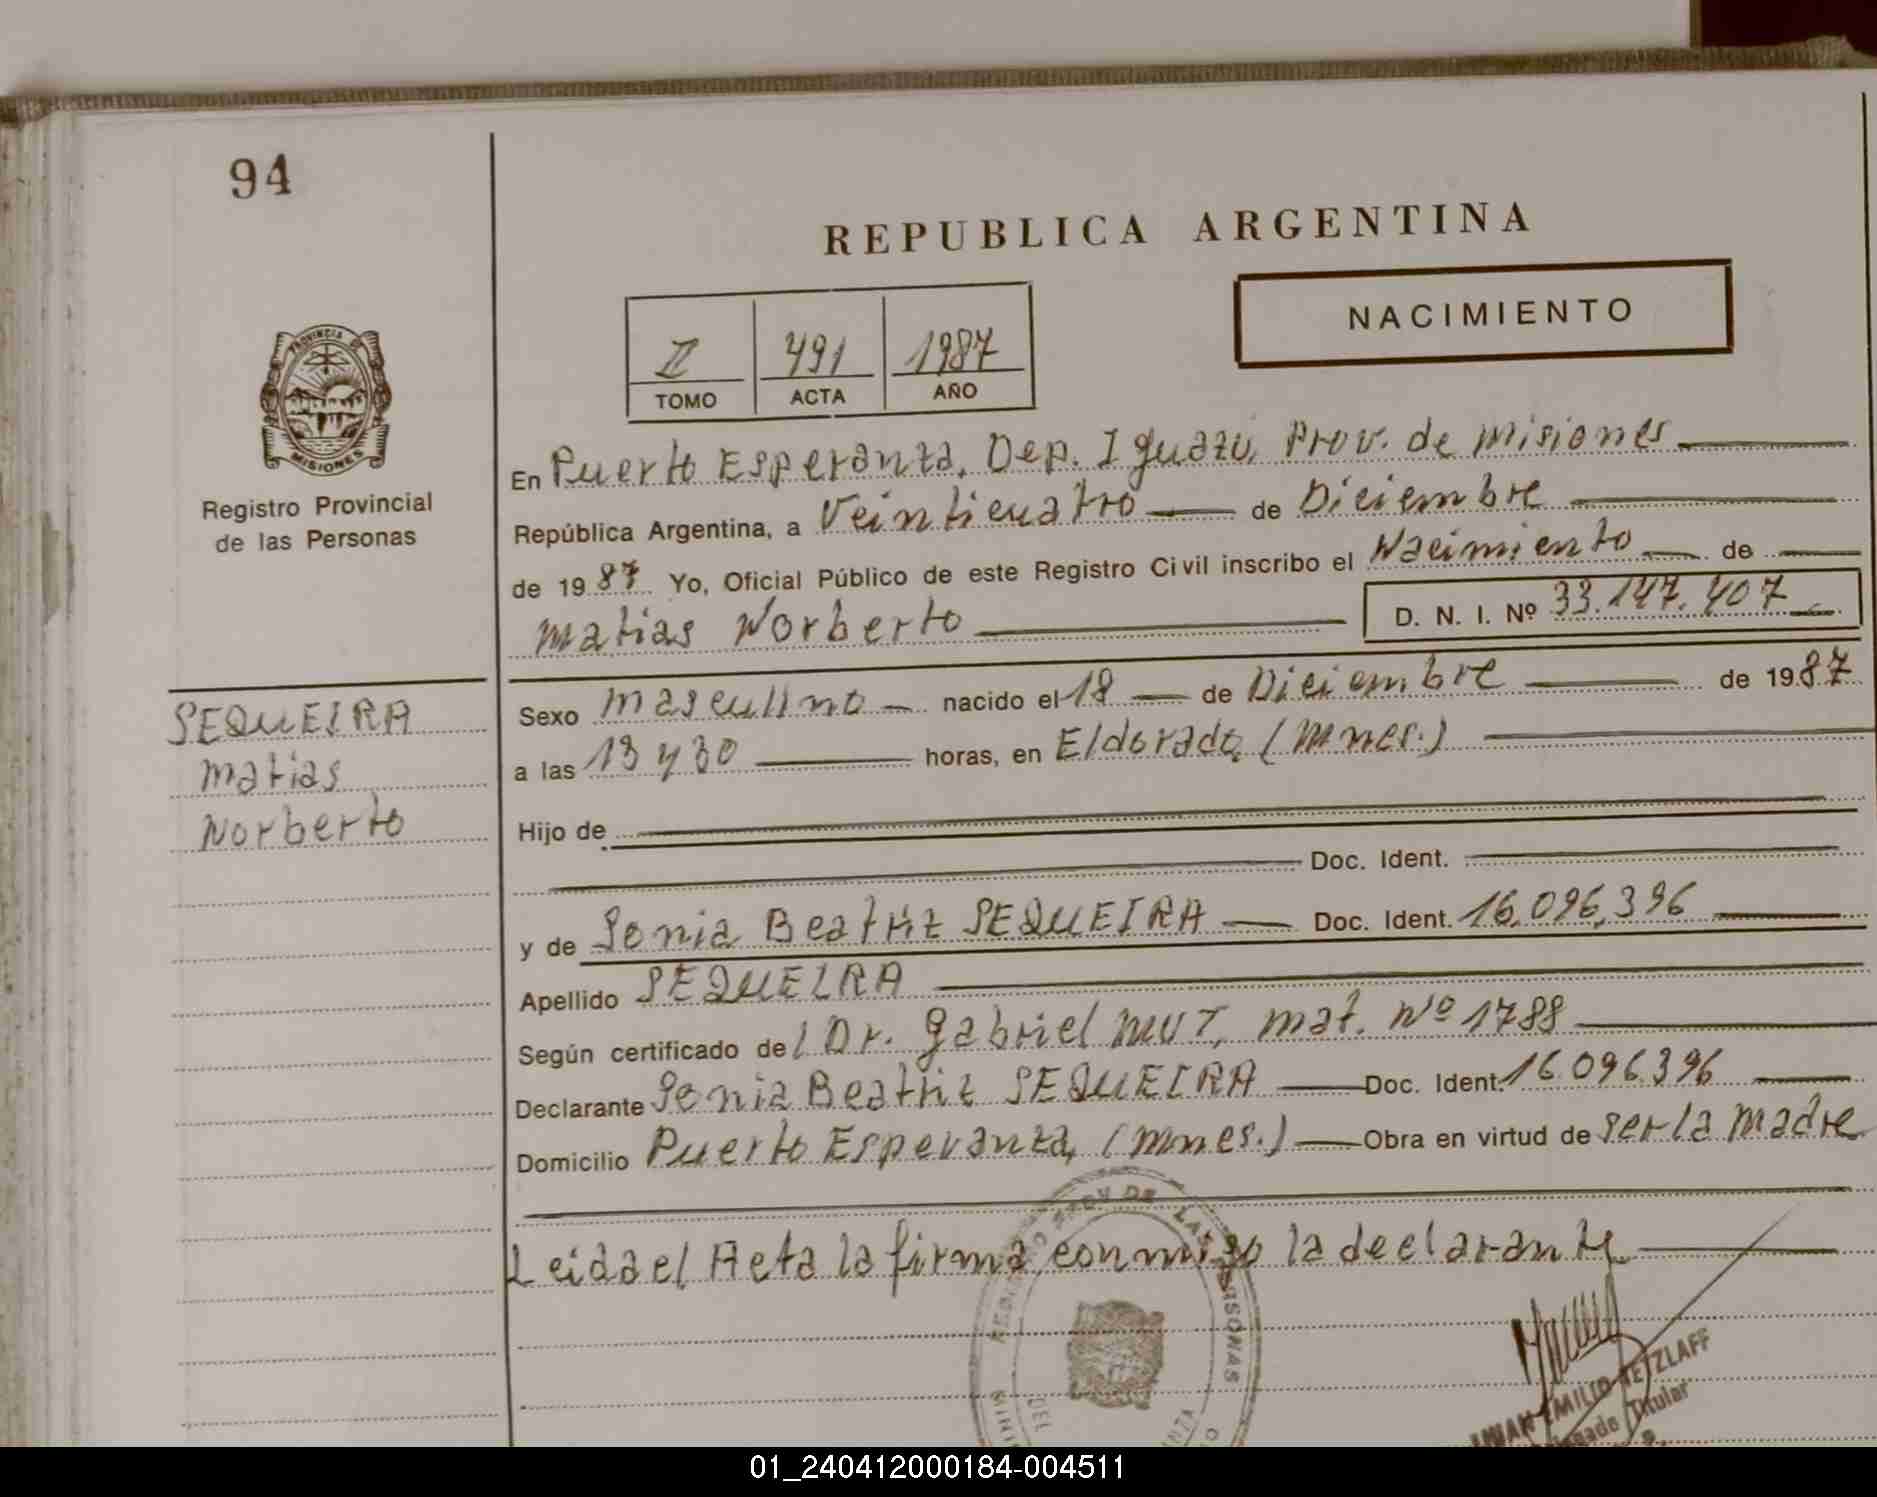 94
REPUBLICA ARGENTINA
NACIMIENTO
II 491 1987
TOMO ACTA AÑO
PROVINCIA DE
MISIONES
Registro Provincial
de las Personas
En Puerto Esperanza, Dep. Iguazú, Prov. de Misiones
República Argentina, a Veinticuatro de Diciembre
de 1987 Yo, Oficial Público de este Registro Civil inscribo el Nacimiento de
Matias Norberto D. N. I. Nº 33.147.407
SEQUEIRA
Matias
Norberto
Sexo Masculino nacido el 18 de Diciembre de 1987
a las 13 y 30 horas, en Eldorado, (Mnes.)
Hijo de
Doc. Ident.
y de Sonia Beatriz SEQUEIRA Doc. Ident. 16.096.396
Apellido SEQUEIRA
Según certificado del Dr. Gabriel MUT, mat. Nº 1788
Declarante Sonia Beatriz SEQUEIRA Doc. Ident. 16.096.396
Domicilio Puerto Esperanza, (Mnes.) Obra en virtud de ser la madre
Leida el Acta la firma conmigo la declarante
PROV DE LAS
DEL
JUAN EMILIO RETZLAFF
Titular
01_240412000184-004511